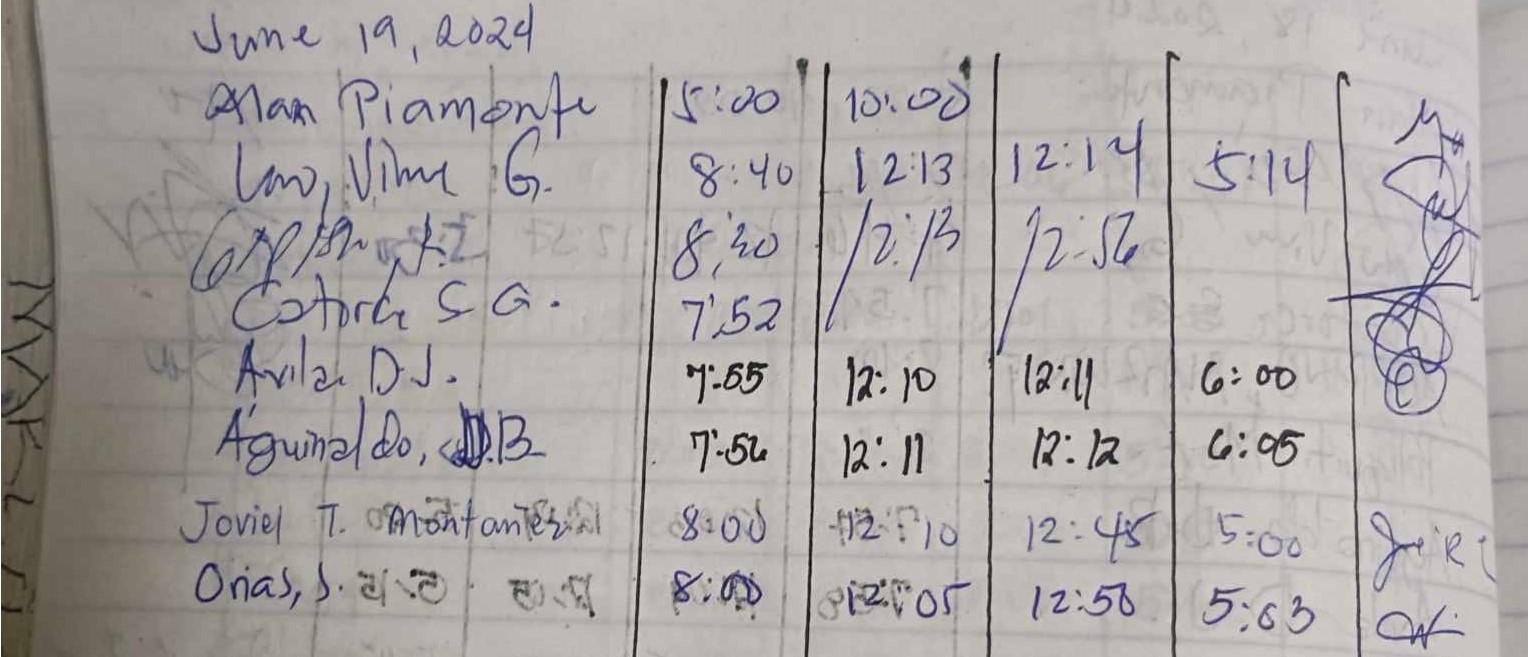 June 19, 2024
Alan Piamonte 5:00 10:00
Law, Vilma G. 8:40 12:13 12:14 5:14
8:30 12:13 12:56
Catorce S G. 7:52
Avila D J. 7:55 12:10 12:11 6:00
Aguinaldo, J.B 7:56 12:11 12:12 6:05
Joviel T. Montañez 8:00 12:10 12:45 5:00
Orias, J. 8:00 12:05 12:58 5:03